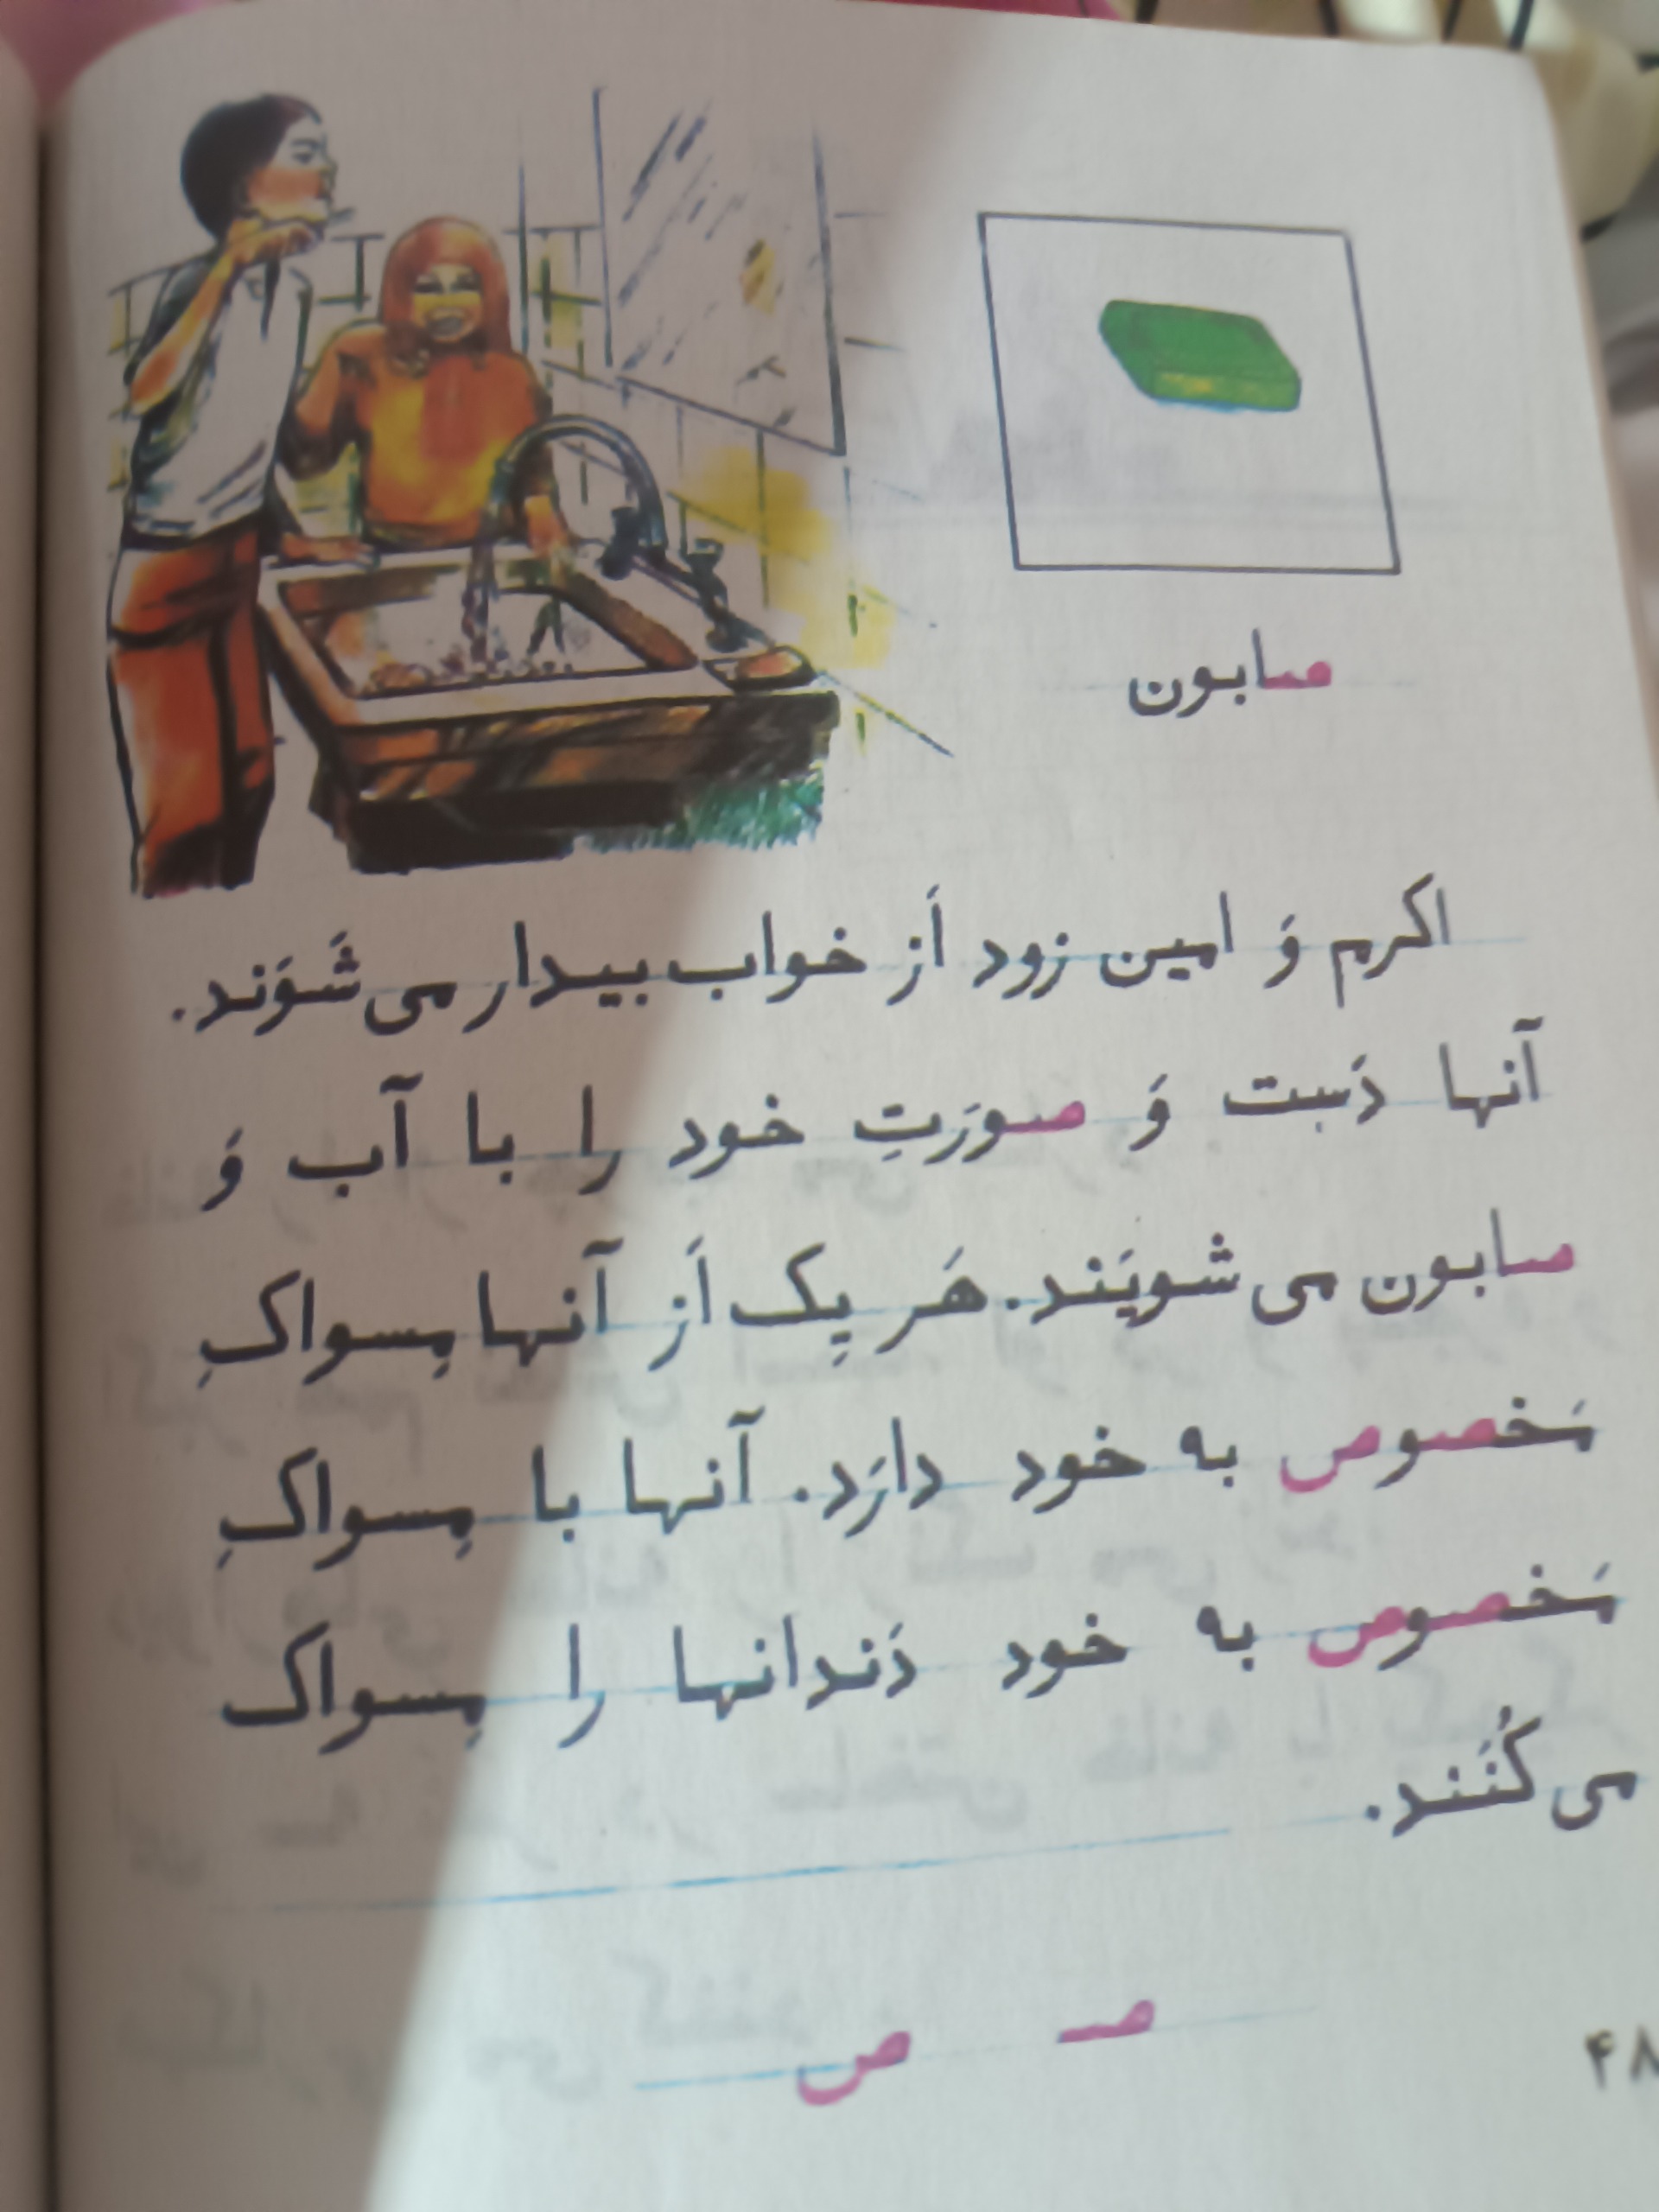 صابون
اکرم وَ امین زود اَز خواب بیدار می شَوَند.
آنها دَست وَ صورَتِ خود را با آب وَ
صابون می شویَند. هَر یِک اَز آنها مِسواکِ
مَخصوص به خود دارَد. آنها با مِسواکِ
مَخصوص به خود دَندانها را مِسواک
می کُنَند.
صـ ص
۴۸